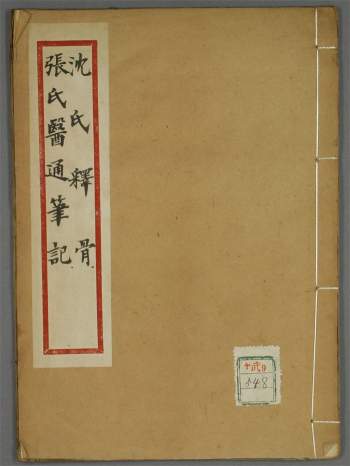 沈氏釋骨
張氏醫通筆記
148